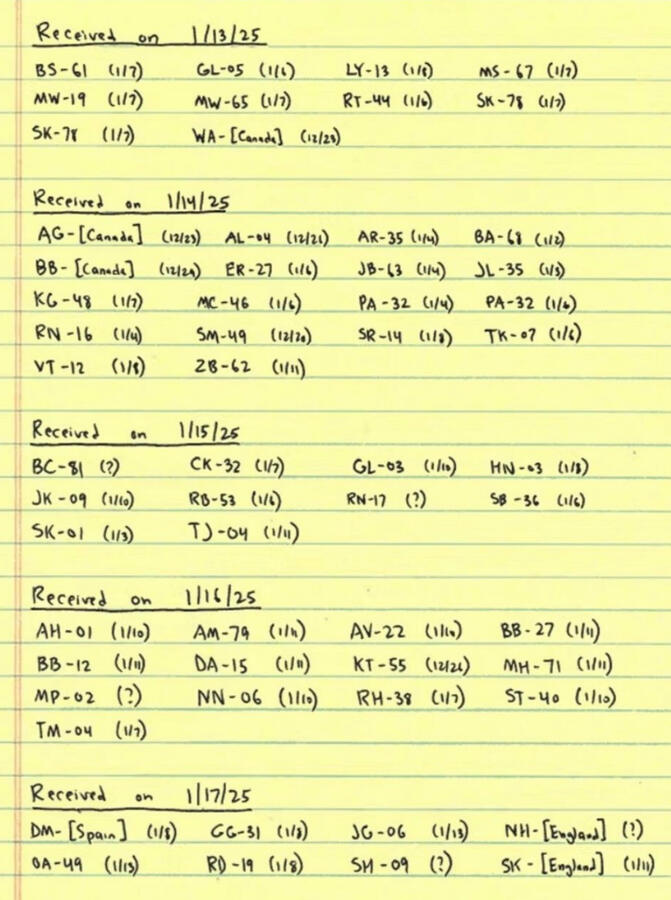 Received on 1/13/25
BS-61 (1/7) GL-05 (1/6) LY-13 (1/8) MS-67 (1/7)
MW-19 (1/7) MW-65 (1/7) RT-44 (1/6) SK-78 (1/7)
SK-78 (1/7) WA-[Canada] (12/23)
Received on 1/14/25
AG-[Canada] (12/23) AL-04 (12/26) AR-35 (1/4) BA-68 (1/2)
BB-[Canada] (12/24) ER-27 (1/6) JB-63 (1/4) JL-35 (1/3)
KG-48 (1/7) MC-46 (1/6) PA-32 (1/4) PA-32 (1/6)
RN-16 (1/4) SM-49 (12/20) SR-14 (1/8) TK-07 (1/6)
VT-12 (1/8) ZB-62 (1/11)
Received on 1/15/25
BC-81 (?) CK-32 (1/7) GL-03 (1/10) HN-03 (1/8)
JK-09 (1/10) RB-53 (1/6) RN-17 (?) SB-36 (1/6)
SK-01 (1/3) TJ-04 (1/11)
Received on 1/16/25
AH-01 (1/10) AM-79 (1/11) AV-22 (1/10) BB-27 (1/11)
BB-12 (1/11) DA-15 (1/11) KT-55 (12/26) MH-71 (1/11)
MP-02 (?) NN-06 (1/10) RH-38 (1/7) ST-40 (1/10)
TM-04 (1/7)
Received on 1/17/25
DM-[Spain] (1/8) GG-31 (1/8) JG-06 (1/13) NH-[England] (?)
OA-49 (1/13) RD-19 (1/8) SH-09 (?) SK-[England] (1/11)